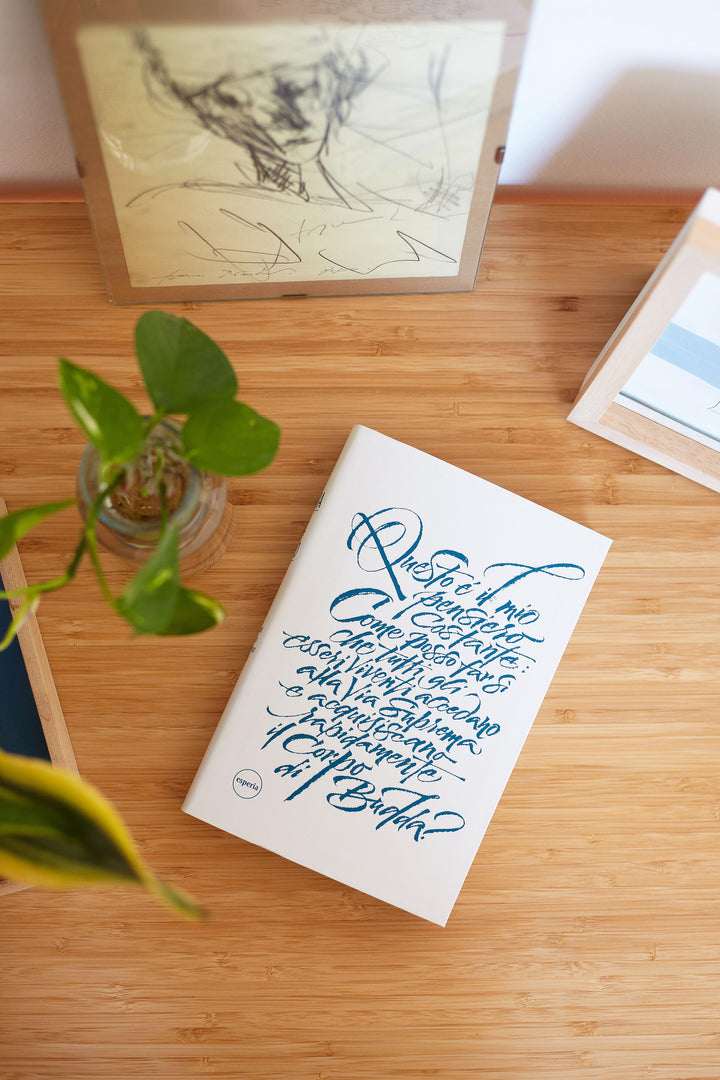 Questo è il mio
pensiero
costante:
Come posso far sì
che tutti gli
esseri viventi accedano
alla Via Suprema
e acquisiscano
rapidamente
il Corpo
di Budda?
esperia